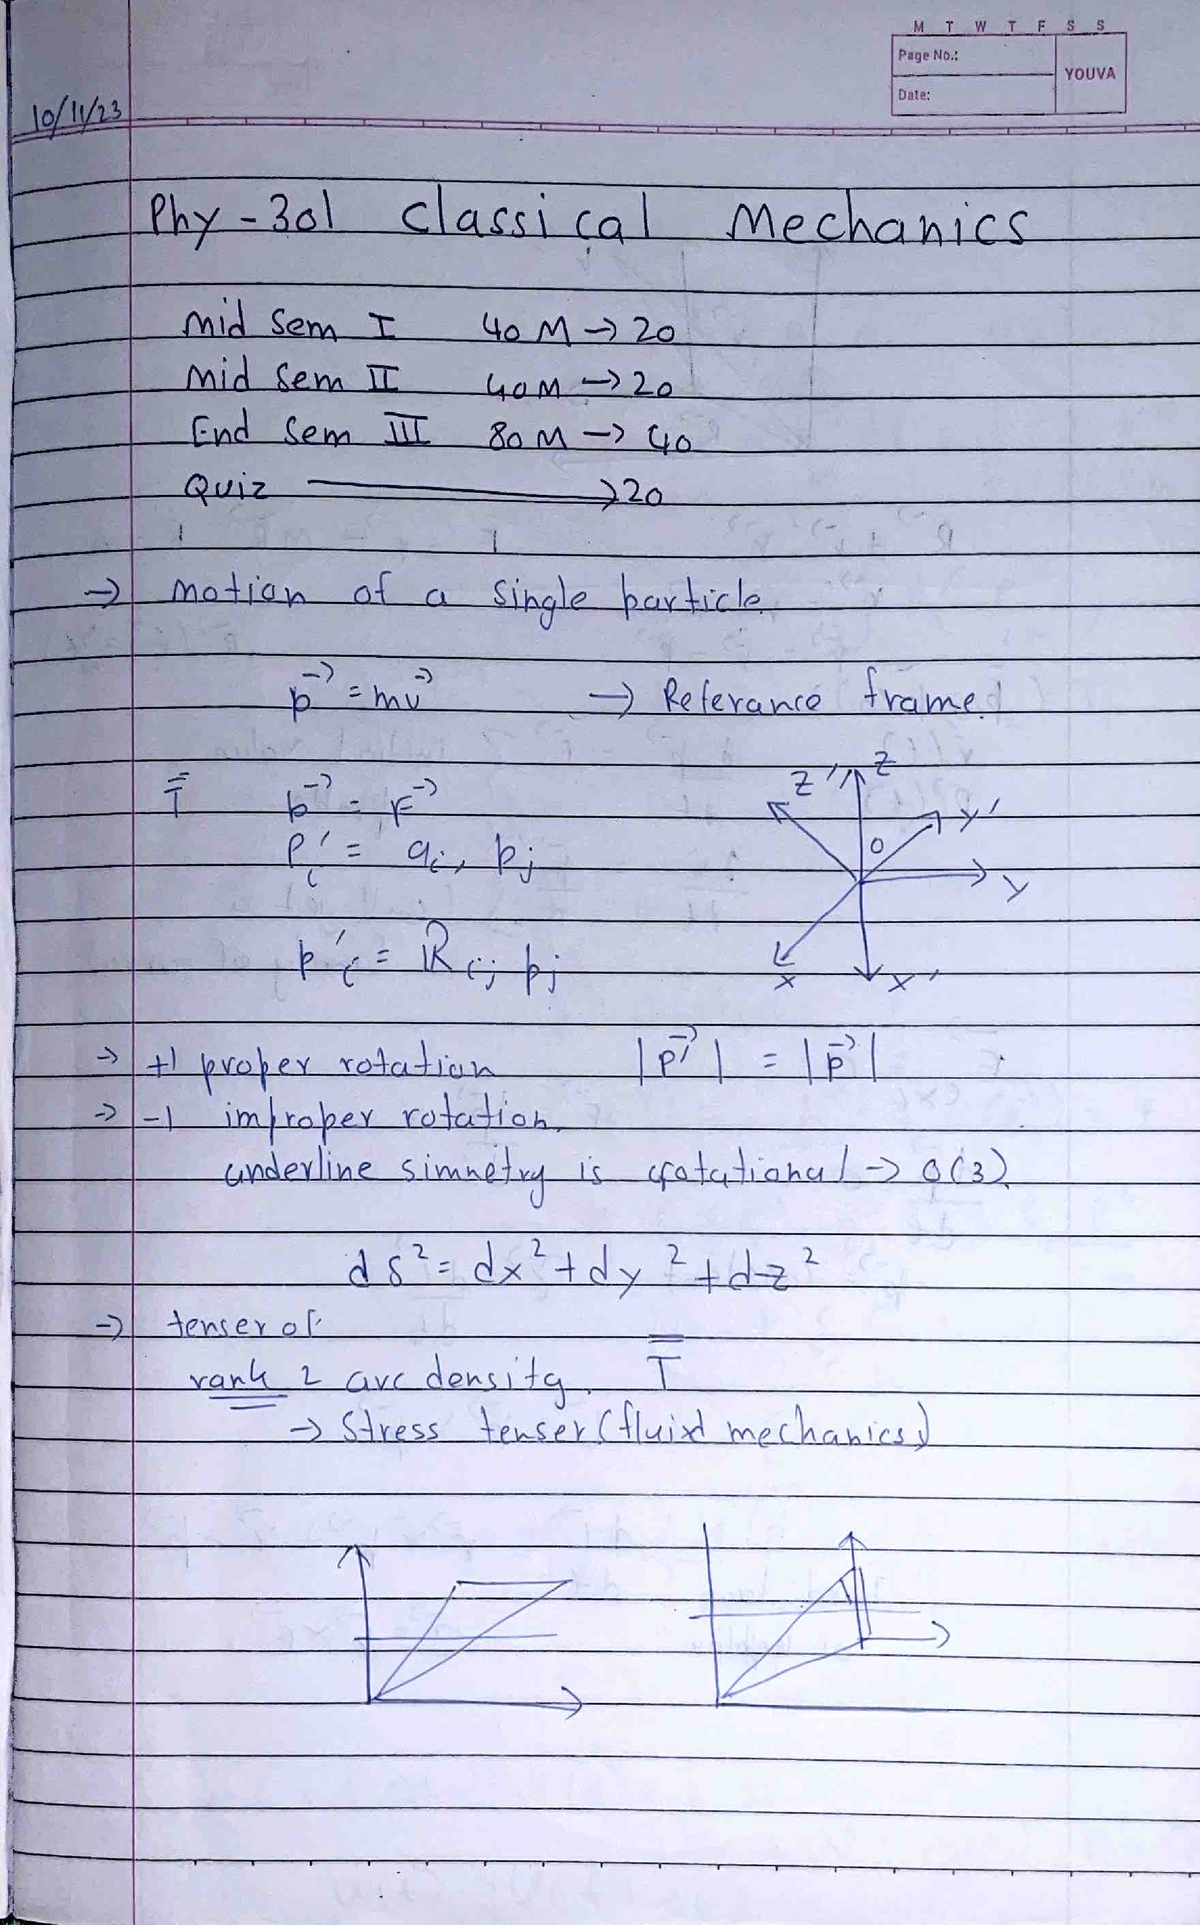 M T W T F S S
Page No.:
YOUVA
Date:
10/11/23
Phy-301 Classical Mechanics
Mid Sem I 40 M → 20
Mid Sem II 40 M → 20
End Sem III 80 M → 40
Quiz → 20
→ motion of a single particle.
p⃗ = mv⃗ → Referance frame.
T̿ p⃗ = F⃗
Z' Z
P'ᵢ = aᵢ, pⱼ
Y'
O
Y
p'ᵢ = ℝᵢⱼ pⱼ
X X'
→ +1 proper rotation |p⃗'| = |p⃗|
→ -1 improper rotation.
underline simmetry is rotational → O(3).
ds² = dx² + dy² + dz²
→ tenser of
rank 2 are density. T̿
→ Stress tenser (fluid mechanics)